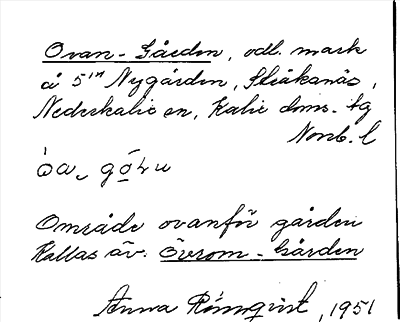 Ovan-Gården, odl. mark
å 5ᵐ Nygården, Stråkanäs,
Nederkalix sn, Kalix doms. tg
Norrb. l
Område ovanför gården
Kallas äv. Överom-Gården
Anna Rönnqvist, 1951